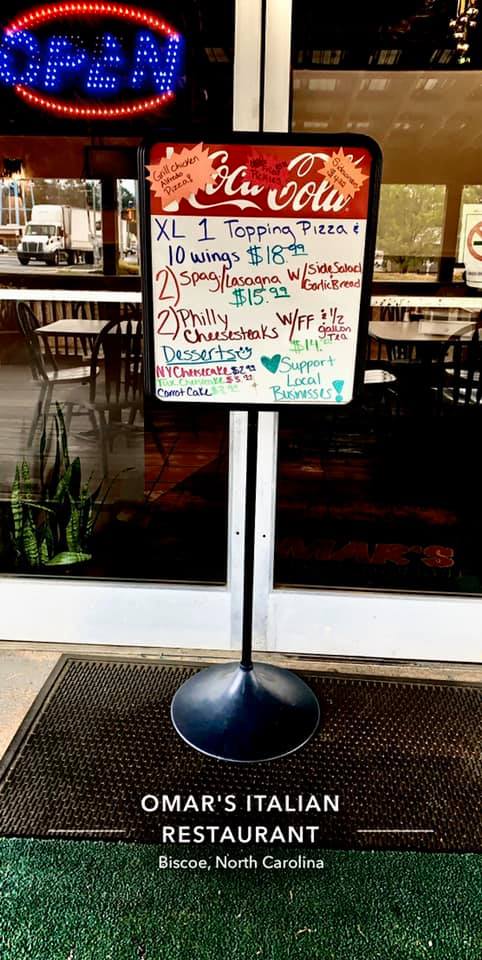 OPEN
Grill Chicken
Alfredo
Pizza!
Fried
Pickles
Coca-Cola
XL 1 Topping Pizza &
10 wings $18.99
2) Spag/Lasagna W/ Side Salad
Garlic Bread
$15.99
2) Philly
Cheesesteaks W/FF & 1/2
gallon
Tea
Desserts
NY Cheesecake $2.99
Cheesecake $3.99
Carrot Cake
Support
Local
Businesses!
OMAR'S
OMAR'S ITALIAN
RESTAURANT
Biscoe, North Carolina